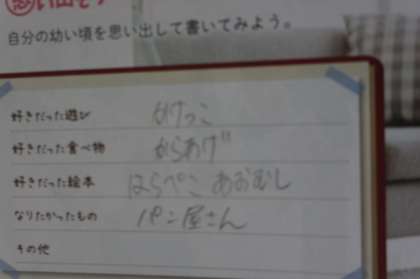 思い出そう
自分の幼い頃を思い出して書いてみよう。
好きだった遊び かけっこ
好きだった食べ物 からあげ
好きだった絵本 はらぺこ あおむし
なりたかったもの パン屋さん
その他